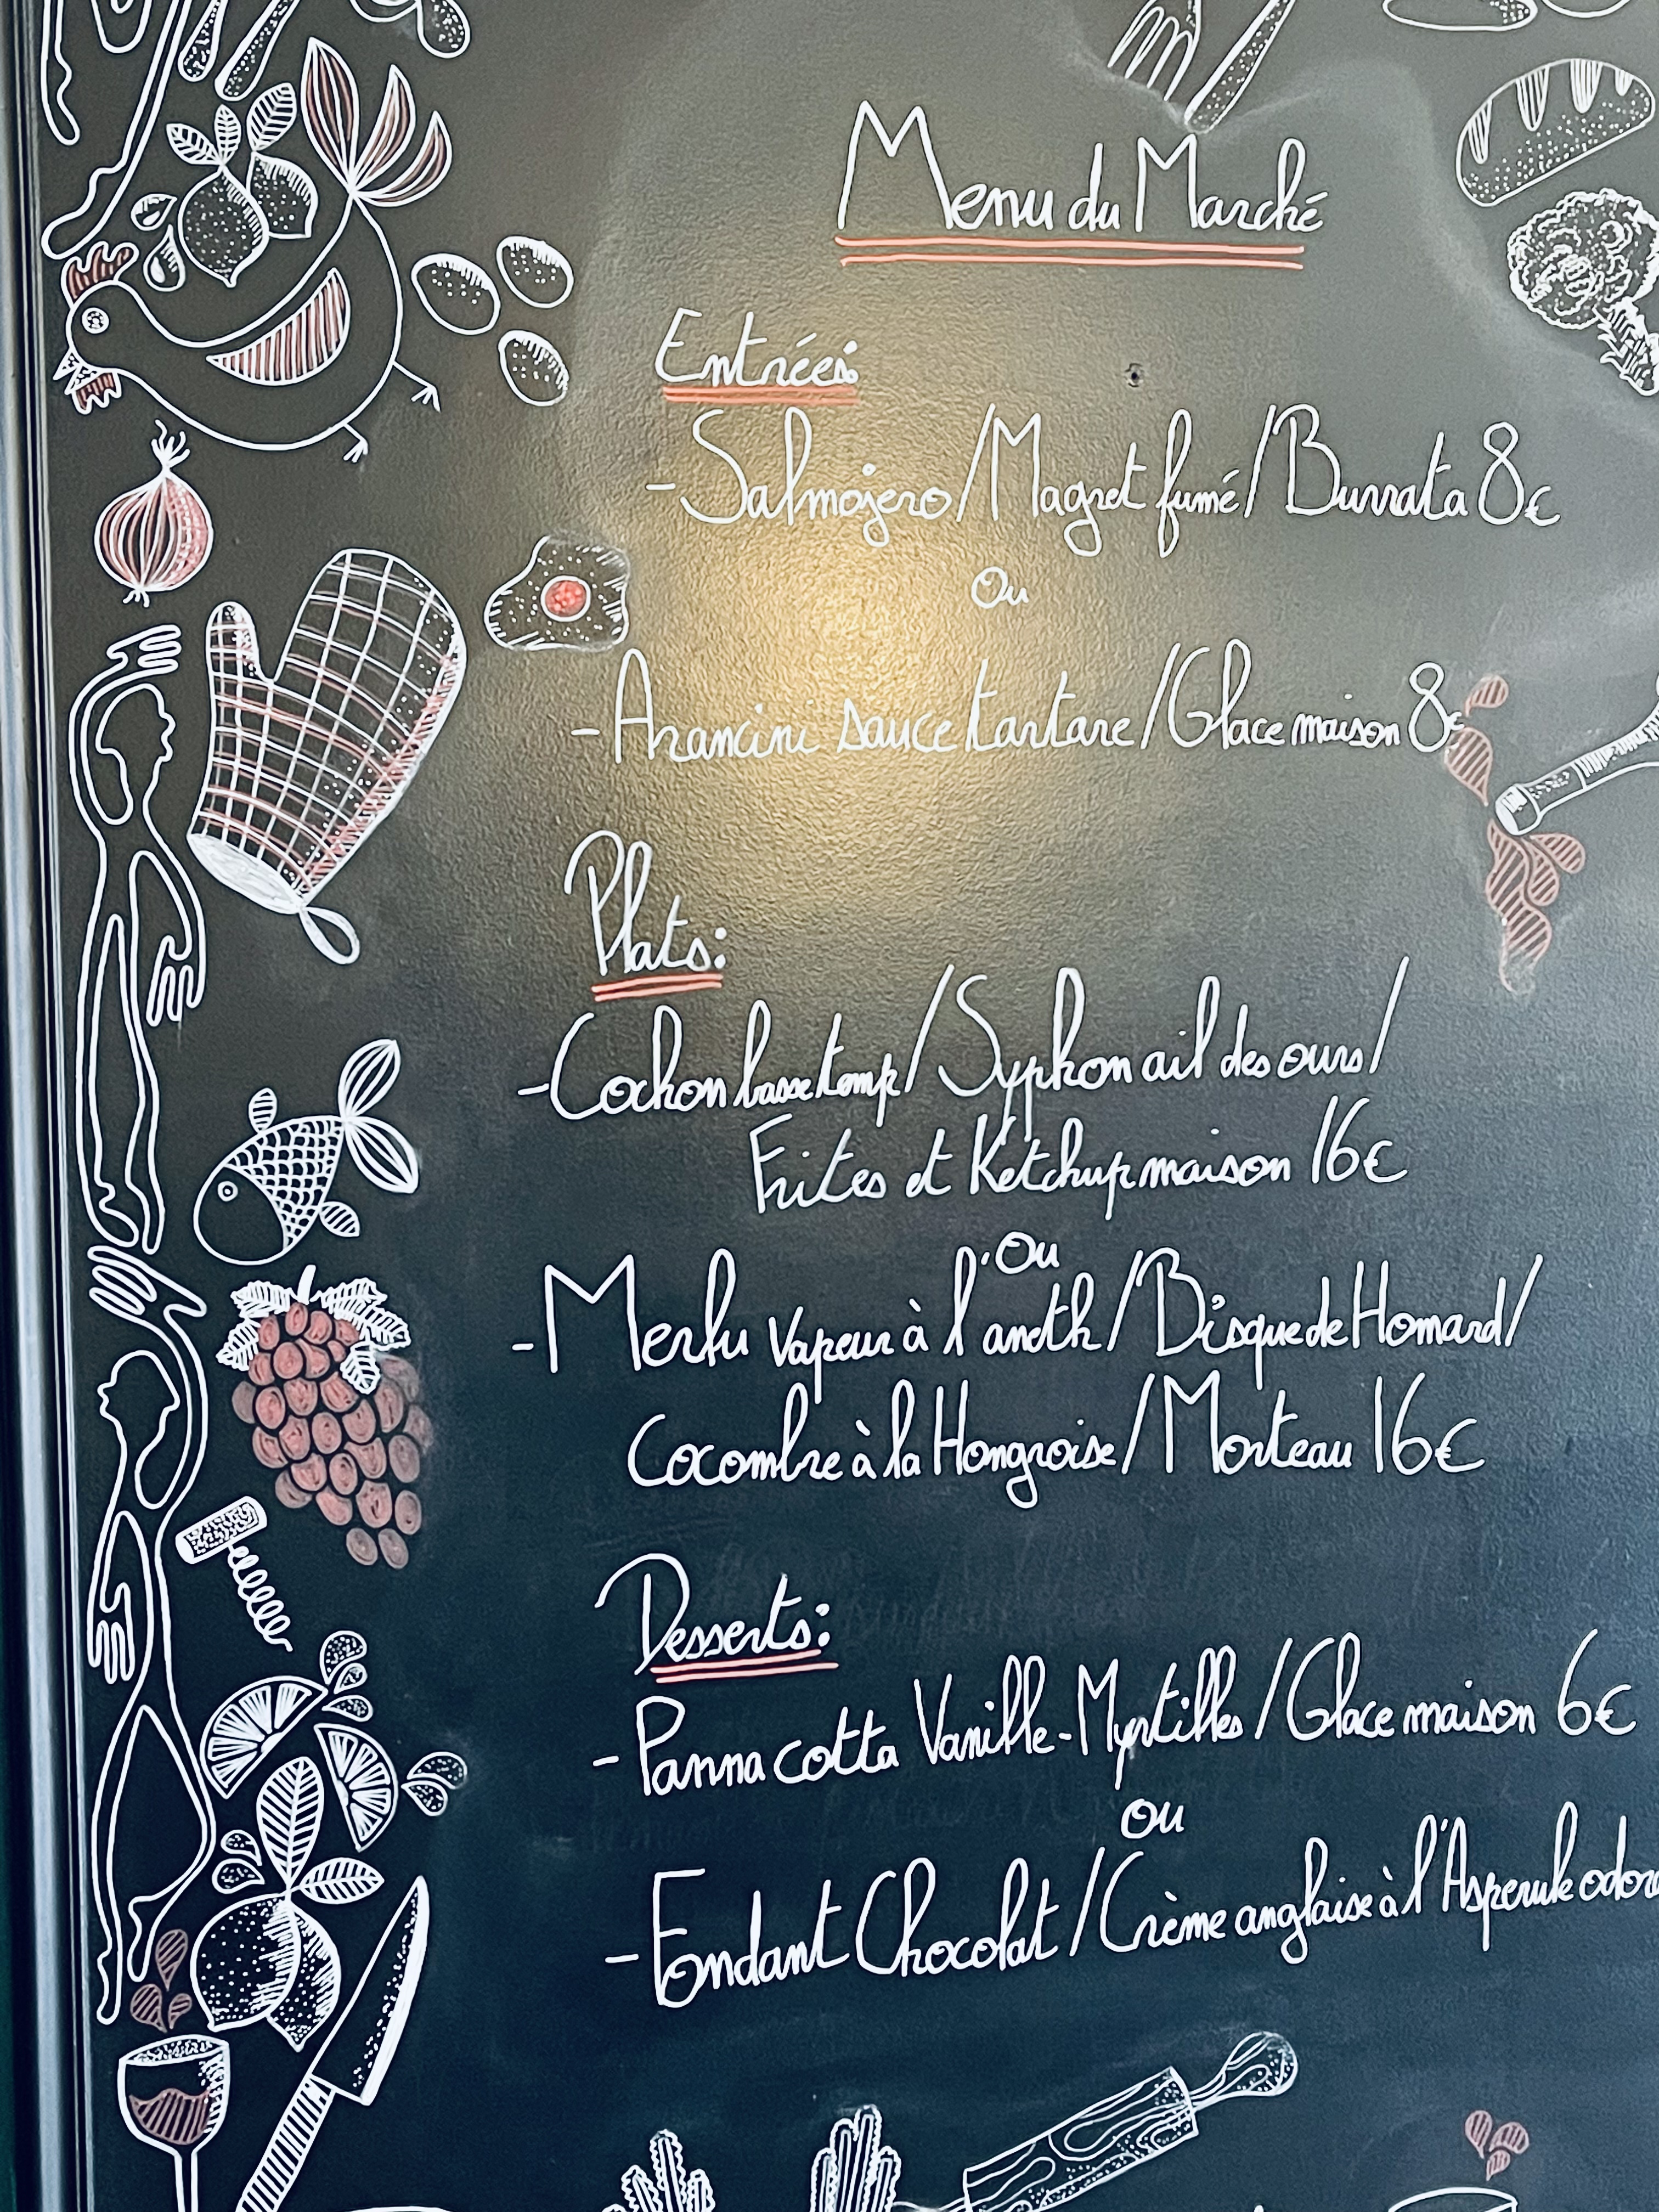 Menu du Marché
Entrées:
- Salmojero/Magret fumé/Burrata 8€
Ou
- Arancini sauce tartare/Glace maison 8€
Plats:
- Cochon basse temp/Syphon ail des ours/
Frites et Ketchup maison 16€
Ou
- Merlu vapeur à l'aneth/Bisque de Homard/
Cocombre à la Hongroise/Morteau 16€
Desserts:
- Panna cotta Vanille-Myrtilles/Glace maison 6€
ou
- Fondant Chocolat/Crème anglaise à l'Asperule